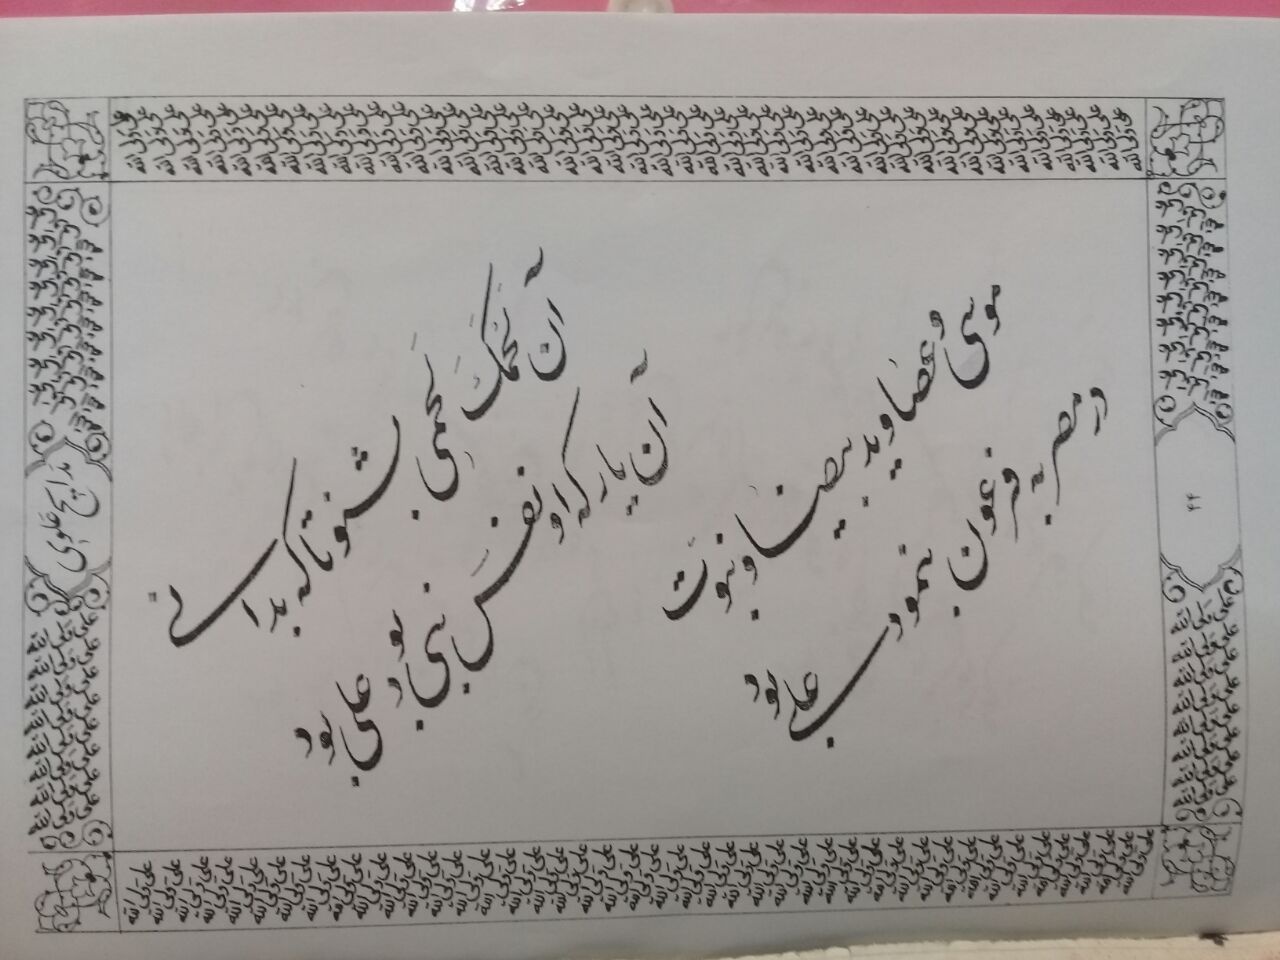 مدایح علوی
موسی و عصا و ید بیضا و نبوت
در مصر به فرعون بنمود علی بود
آن لحمک لحمی بشنو تا که بدانی
آن یار که او نفس نبی بود علی بود
علی ولی الله